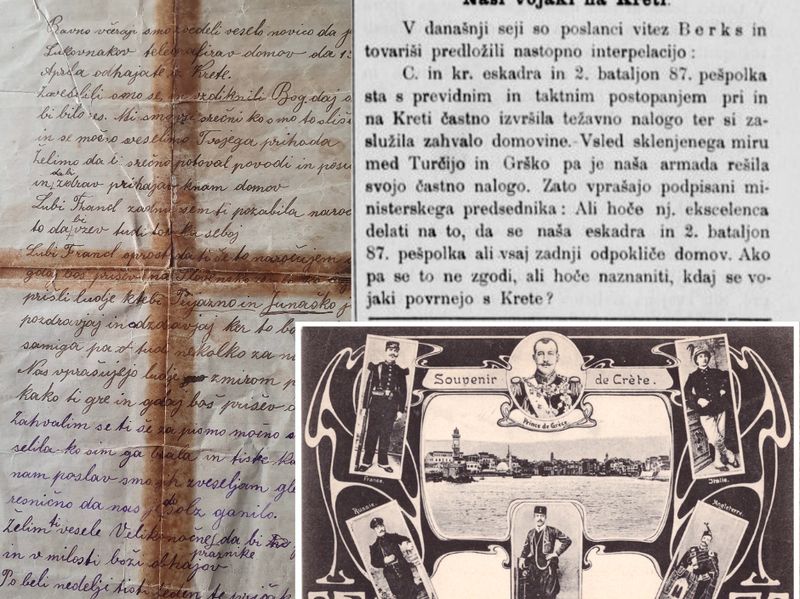 Ravno včeraj smo zvedeli veselo novico da j
Lukovnakov telegrafirav domov da
Aprila odhajate iz Krete.
Zavedeli smo se, in vzdiknili Bog daj
bi bilo res. Mi smo srečni ko smo to sliš
in se močno veselimo Tvojega prihoda
Želimo da bi srečno potoval povodi in
in da bi zdrav prihajav knam domov
Lubi Francl zadnič sem ti pozabila naroč
to da bi vzev tudi seboj
Lubi Francl oprosti da ti se to naročujem
gdaj boš prišev na
prišli ludje ktebi Prijazno in Junaško
pozdravjaj in odzdravjaj ker to
samiga pa ot tudi nekolko za
Nas vprašujejo ludje zmirom
kako ti gre in gdaj boš prišev
Zahvalim se ti še za pismo močno
selila ko sim ga brala in tiske
nam poslav smo jih zveseljam
resnično da nas do solz ganilo.
Želim ti vesele Velikonočne da bi
in v milosti božji obhajov praznike
Po beli nedelji tisti teden
Naši vojaki na Kreti.
V današnji seji so poslanci vitez Berks in
tovariši predložili nastopno interpelacijo:
C. in kr. eskadra in 2. bataljon 87. pešpolka
sta s previdnim in taktnim postopanjem pri in
na Kreti častno izvršila težavno nalogo ter si za-
služila zahvalo domovine. Vsled sklenjenega miru
med Turčijo in Grško pa je naša armada rešila
svojo častno nalogo. Zato vprašajo podpisani mi-
nisterskega predsednika: Ali hoče nj. ekscelenca
delati na to, da se naša eskadra in 2. bataljon
87. pešpolka ali vsaj zadnji odpokliče domov. Ako
pa se to ne zgodi, ali hoče naznaniti, kdaj se vo-
jaki povrnejo s Krete?
Souvenir de Crète.
Prince de Grèce.
France.
Italie.
Russie.
Angleterre.